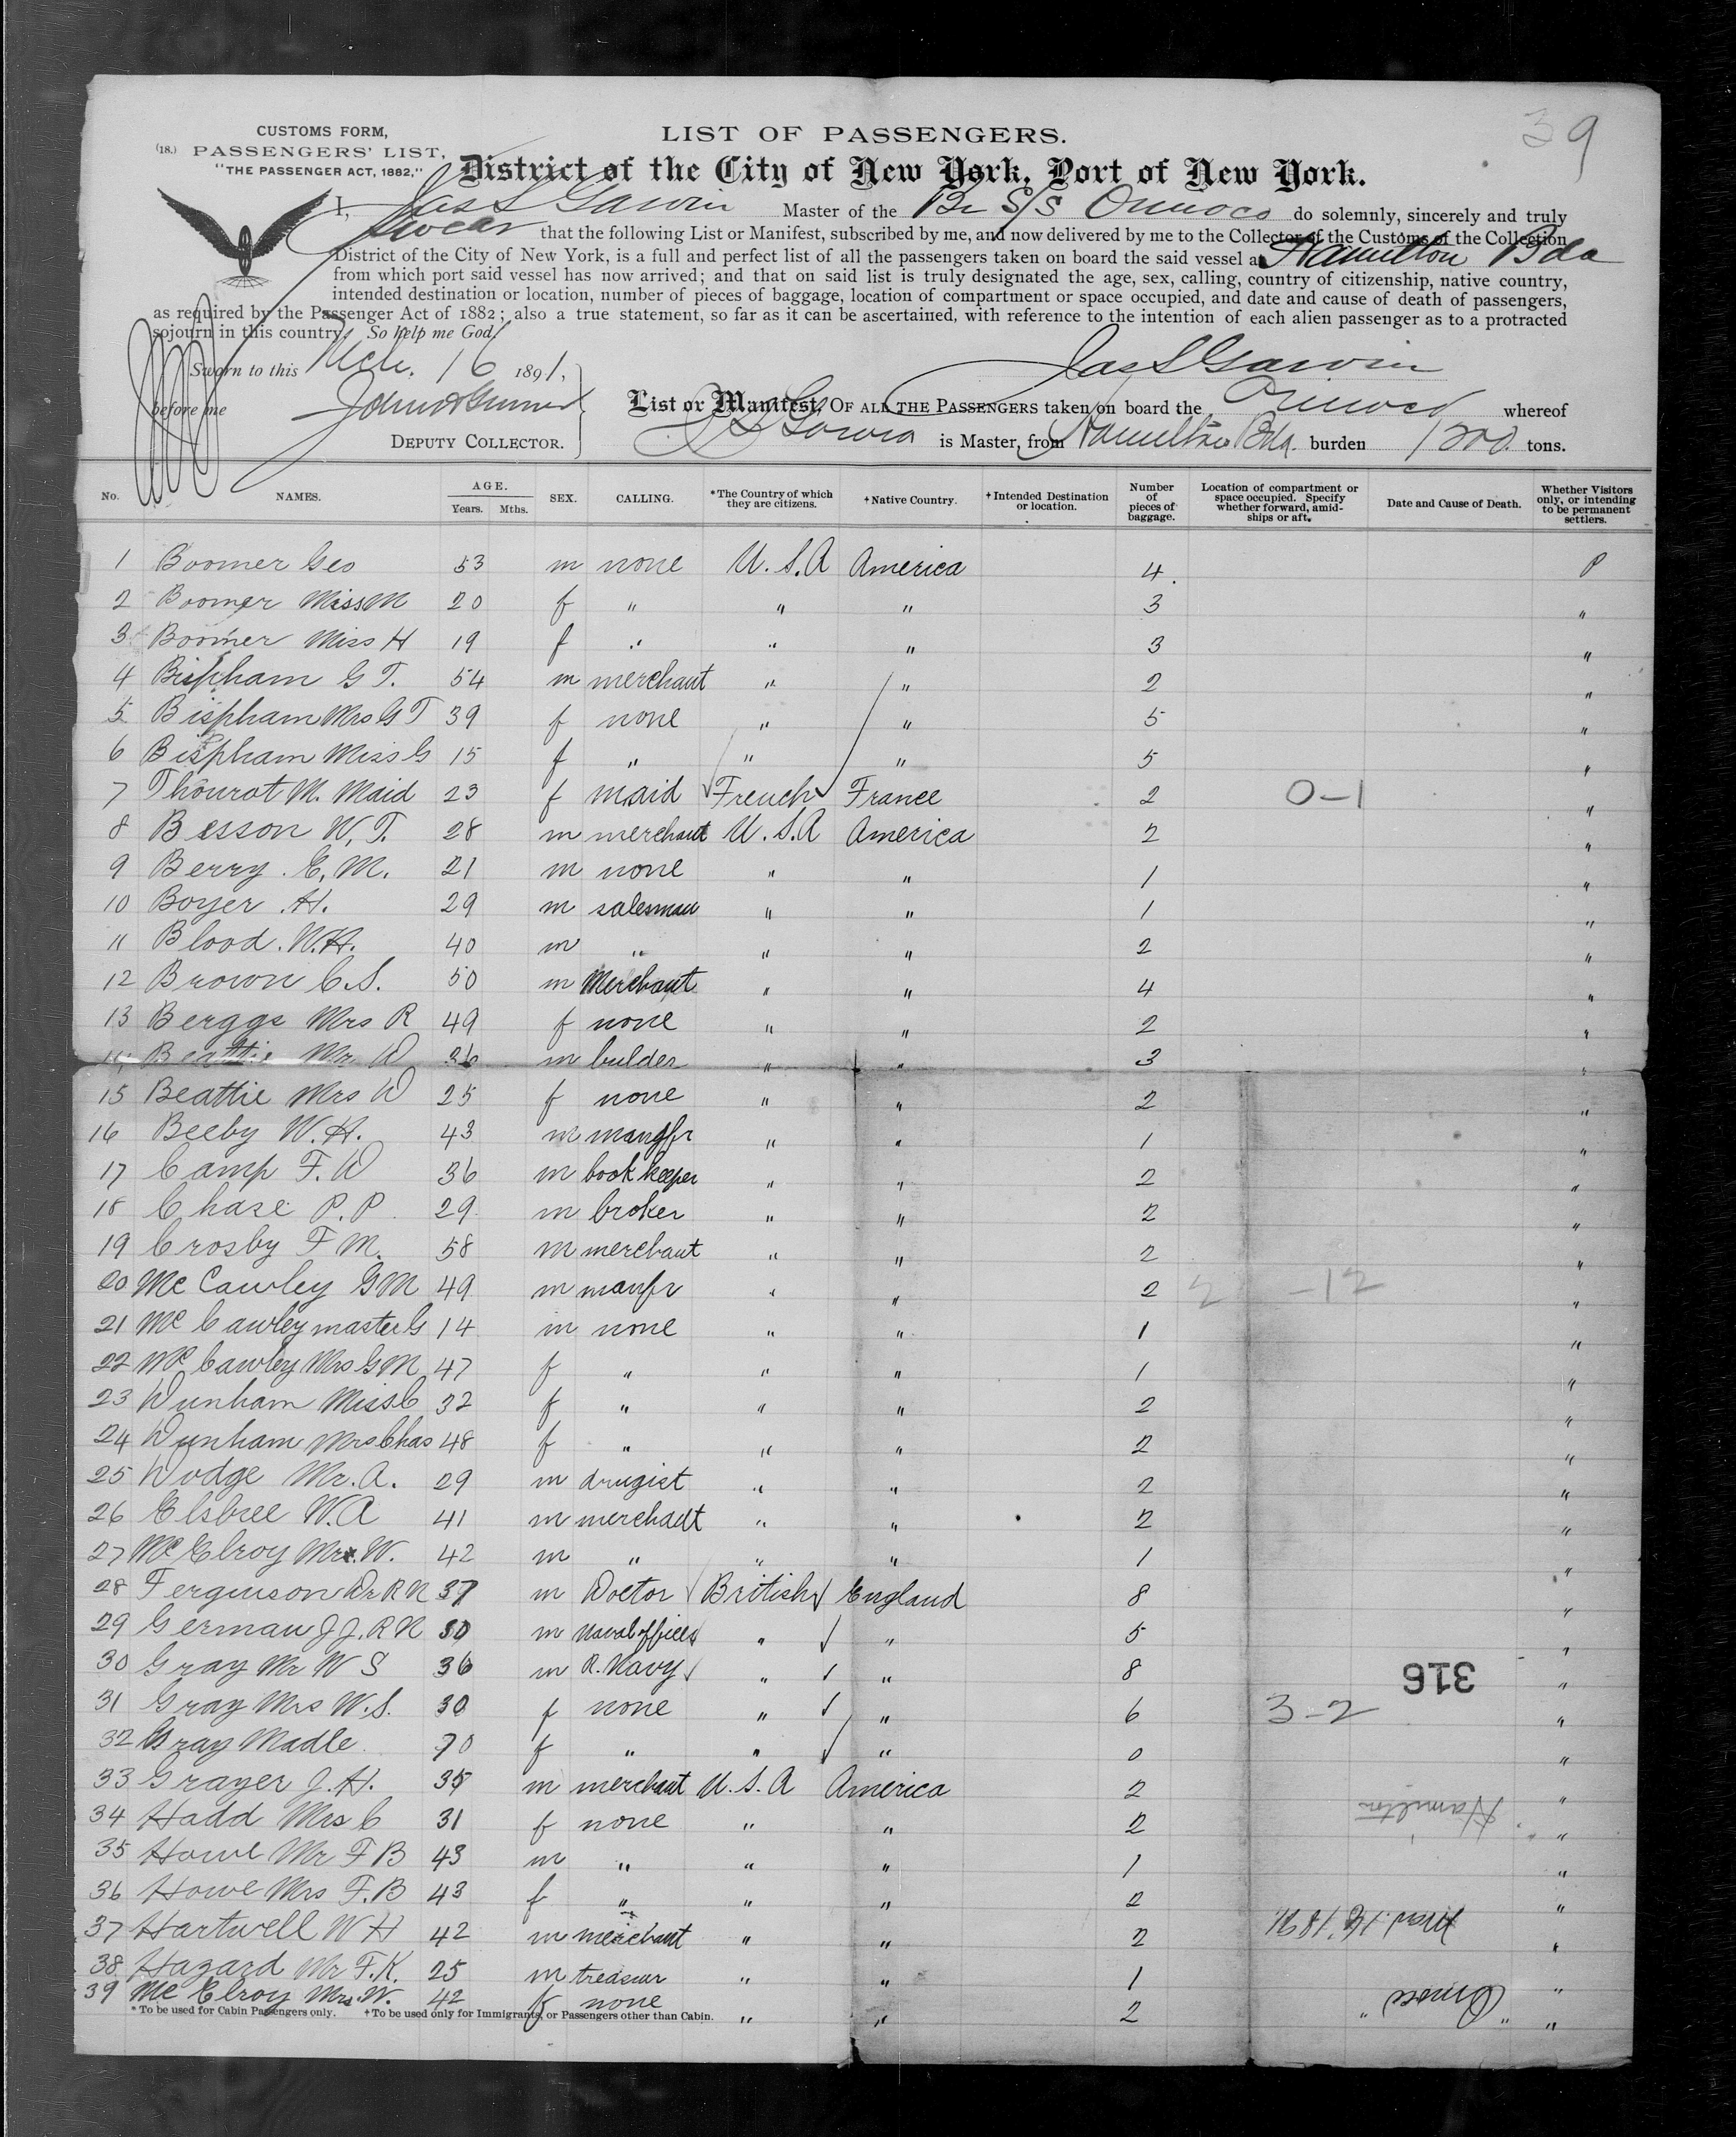 39
CUSTOMS FORM,
(18.) PASSENGERS' LIST,
"THE PASSENGER ACT, 1882,"
LIST OF PASSENGERS.
District of the City of New York, Port of New York.
I, Jas S Garvin Master of the Br S/S Orinoco do solemnly, sincerely and truly
swear that the following List or Manifest, subscribed by me, and now delivered by me to the Collector of the Customs of the Collection
District of the City of New York, is a full and perfect list of all the passengers taken on board the said vessel at Hamilton Bda
from which port said vessel has now arrived; and that on said list is truly designated the age, sex, calling, country of citizenship, native country,
intended destination or location, number of pieces of baggage, location of compartment or space occupied, and date and cause of death of passengers,
as required by the Passenger Act of 1882; also a true statement, so far as it can be ascertained, with reference to the intention of each alien passenger as to a protracted
sojourn in this country. So help me God.
Sworn to this Mch. 16 1891,
Jas S Garvin
before me
DEPUTY COLLECTOR.
List or Manifest, OF ALL THE PASSENGERS taken on board the Orinoco whereof
J S Garvin is Master, from Hamilton Bda. burden 1200 tons.
No. NAMES. AGE. Years. Mths. SEX. CALLING. *The Country of which they are citizens. †Native Country. †Intended Destination or location. Number of pieces of baggage. Location of compartment or space occupied. Specify whether forward, amidships or aft. Date and Cause of Death. Whether Visitors only, or intending to be permanent settlers.
1 Boomer Geo 53 m none U.S.A America 4 P
2 Boomer Miss M 20 f " " " 3 "
3 Boomer Miss H 19 f " " " 3 "
4 Bispham G T. 54 m merchant " " 2 "
5 Bispham Mrs G T 39 f none " " 5 "
6 Bispham Miss G 15 f " " " 5 "
7 Thourot M. Maid 23 f maid French France 2 0-1 "
8 Besson W, T. 28 m merchant U.S.A America 2 "
9 Berry. E, M. 21 m none " " 1 "
10 Boyer .H. 29 m salesman " " 1 "
11 Blood. W.H. 40 m " " " 2 "
12 Brown C.S. 50 m Merchant " " 4 "
13 Berggs Mrs R 49 f none " " 2 "
14 Beattie Mr W 36 m bulder " " 3 "
15 Beattie Mrs W 25 f none " " 2 "
16 Beeby W.H. 43 m mangfr " " 1 "
17 Camp F. W 36 m book keeper " " 2 "
18 Chase P.P 29 m broker " " 2 "
19 Crosby F M. 58 m merchant " " 2 "
20 Mc Cawley G M 49 m manfr " " 2 2 -12 "
21 Mc Cawley master G 14 m none " " 1 "
22 Mc Cawley Mrs G M 47 f " " " 1 "
23 Dunham Miss C 32 f " " " 2 "
24 Dunham Mrs Chas 48 f " " " 2 "
25 Dodge Mr. A. 29 m drugist " " 2 "
26 Elsbree W. A 41 m merchant " " 2 "
27 Mc Elroy Mr. W. 42 m " " " 1 "
28 Ferguison Dr R N 37 m Doctor British England 8 "
29 German J J, R N 30 m Naval officer " " 5 "
30 Gray Mr W S 36 m R. Navy " " 8 "
316
31 Gray Mrs W.S. 30 f none " " 6 3-2 "
32 Gray Madle 70 f " " " 0 "
33 Grayer J. H. 35 m merchant U.S.A America 2 "
Hamilton
34 Hadd Mrs C 31 f none " " 2 "
35 Howe Mr F B 43 m " " " 1 "
36 Howe Mrs F.B 43 f " " " 2 "
Mar. 16 1891.
37 Hartwell W H 42 m merchant " " 2 "
38 Hazard Mr F.K. 25 m treasur " " 1 "
39 Mc Elroy Mrs. W. 42 f none " " 2 "
Orinoco
* To be used for Cabin Passengers only. †To be used only for Immigrants, or Passengers other than Cabin.